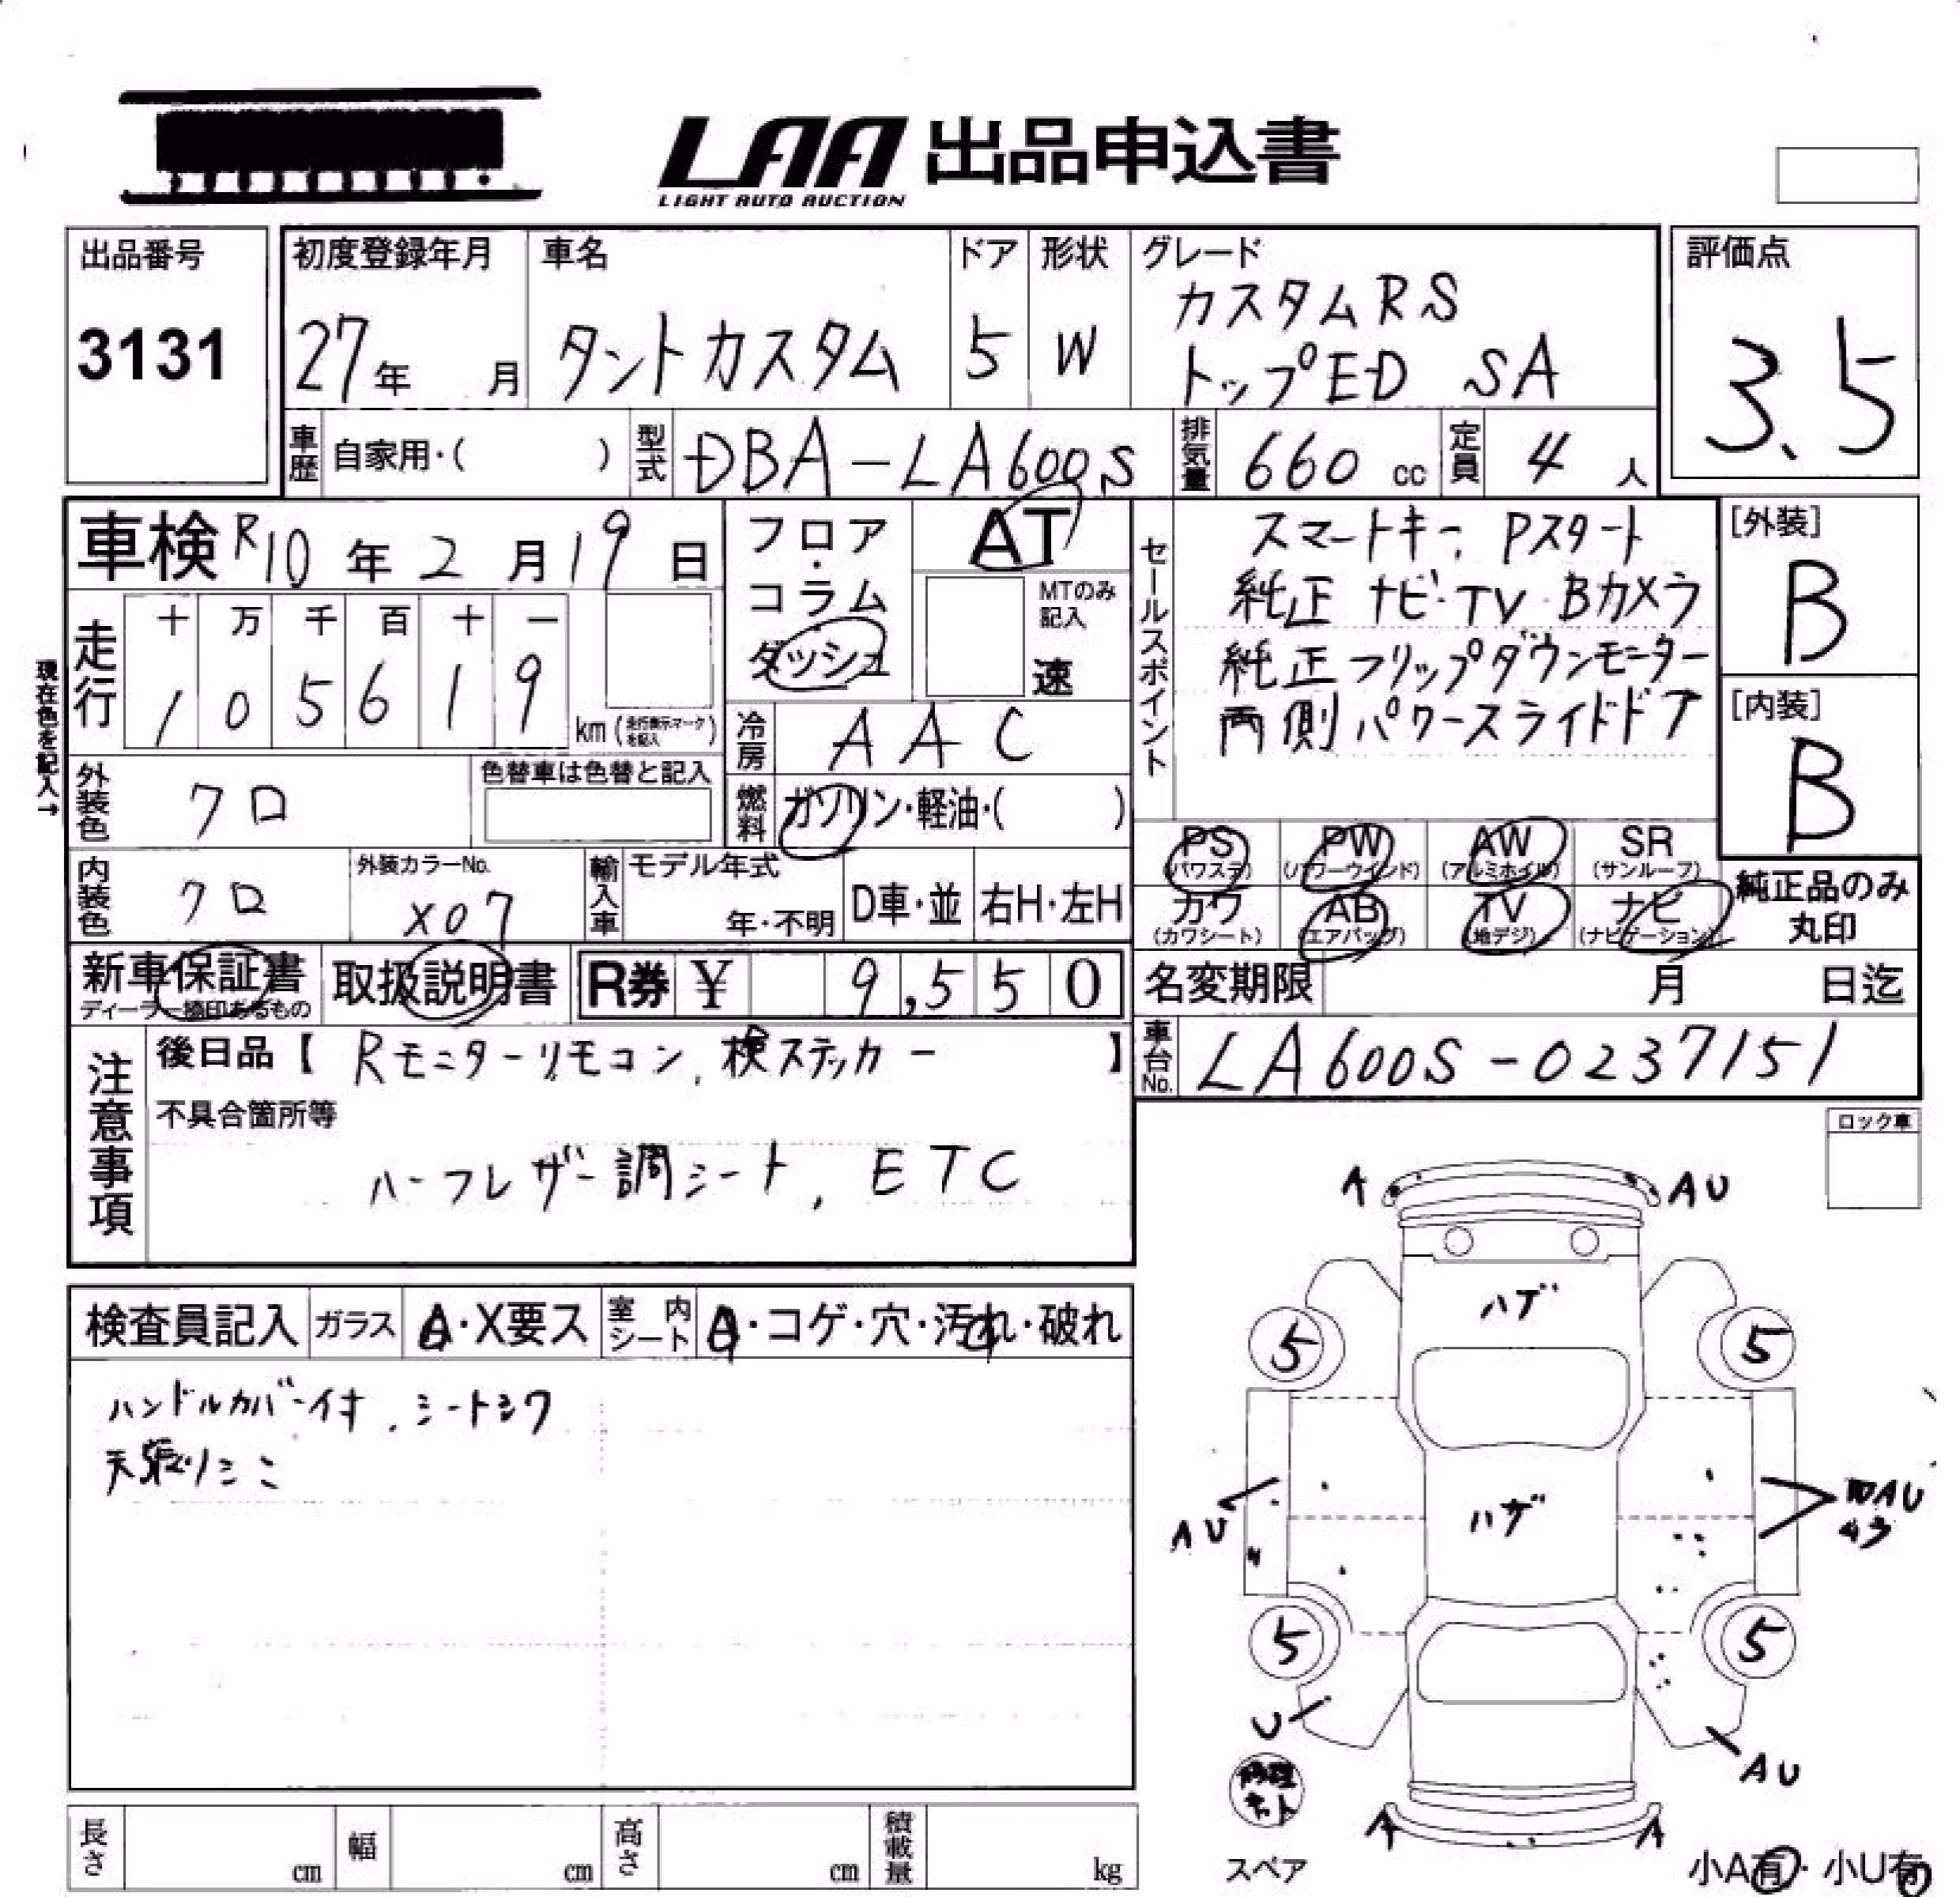 LAA 出品申込書
LIGHT AUTO AUCTION
出品番号
3131
初度登録年月
27年 月
車名
タントカスタム
ドア
5
形状
W
グレード
カスタムRS
トップED SA
評価点
3.5
車歴 自家用・( )
型式 DBA-LA600S
排気量 660 cc
定員 4 人
車検 R10年2月19日
走行 十 万 千 百 十 一
1 0 5 6 1 9 km (走行表示マークを記入)
現在色を記入→
フロア・
コラム・
ダッシュ
AT
MTのみ
記入
速
冷房 AAC
燃料 ガソリン・軽油・( )
外装色 クロ
色替車は色替と記入
内装色 クロ
外装カラーNo.
X07
輸入車 モデル年式
年・不明
D車・並 右H・左H
セールスポイント
スマートキー, Pスタート
純正ナビ・TV・Bカメラ
純正フリップダウンモニター
両側パワースライドドア
[外装]
B
[内装]
B
PS PW AW SR
(パワステ) (パワーウインド) (アルミホイル) (サンルーフ)
カワ AB TV ナビ
(カワシート) (エアバッグ) (地デジ) (ナビゲーション)
純正品のみ
丸印
新車保証書
ディーラー捺印あるもの
取扱説明書
R券 ¥ 9,550
名変期限 月 日迄
車台No. LA600S-0237151
注意事項
後日品【 Rモニターリモコン, 検ステッカー 】
不具合箇所等
ハーフレザー調シート, ETC
ロック車
検査員記入 ガラス A・X要ス 室内シート A・コゲ・穴・汚れ・破れ
ハンドルカバー付, シートシワ
天張りシミ
A AU
ハゲ
5 5
ハゲ
AU
AU
5 5
U
AU
修理
キット
スペア
A A
小A有・小U有
長さ cm 幅 cm 高さ cm 積載量 kg